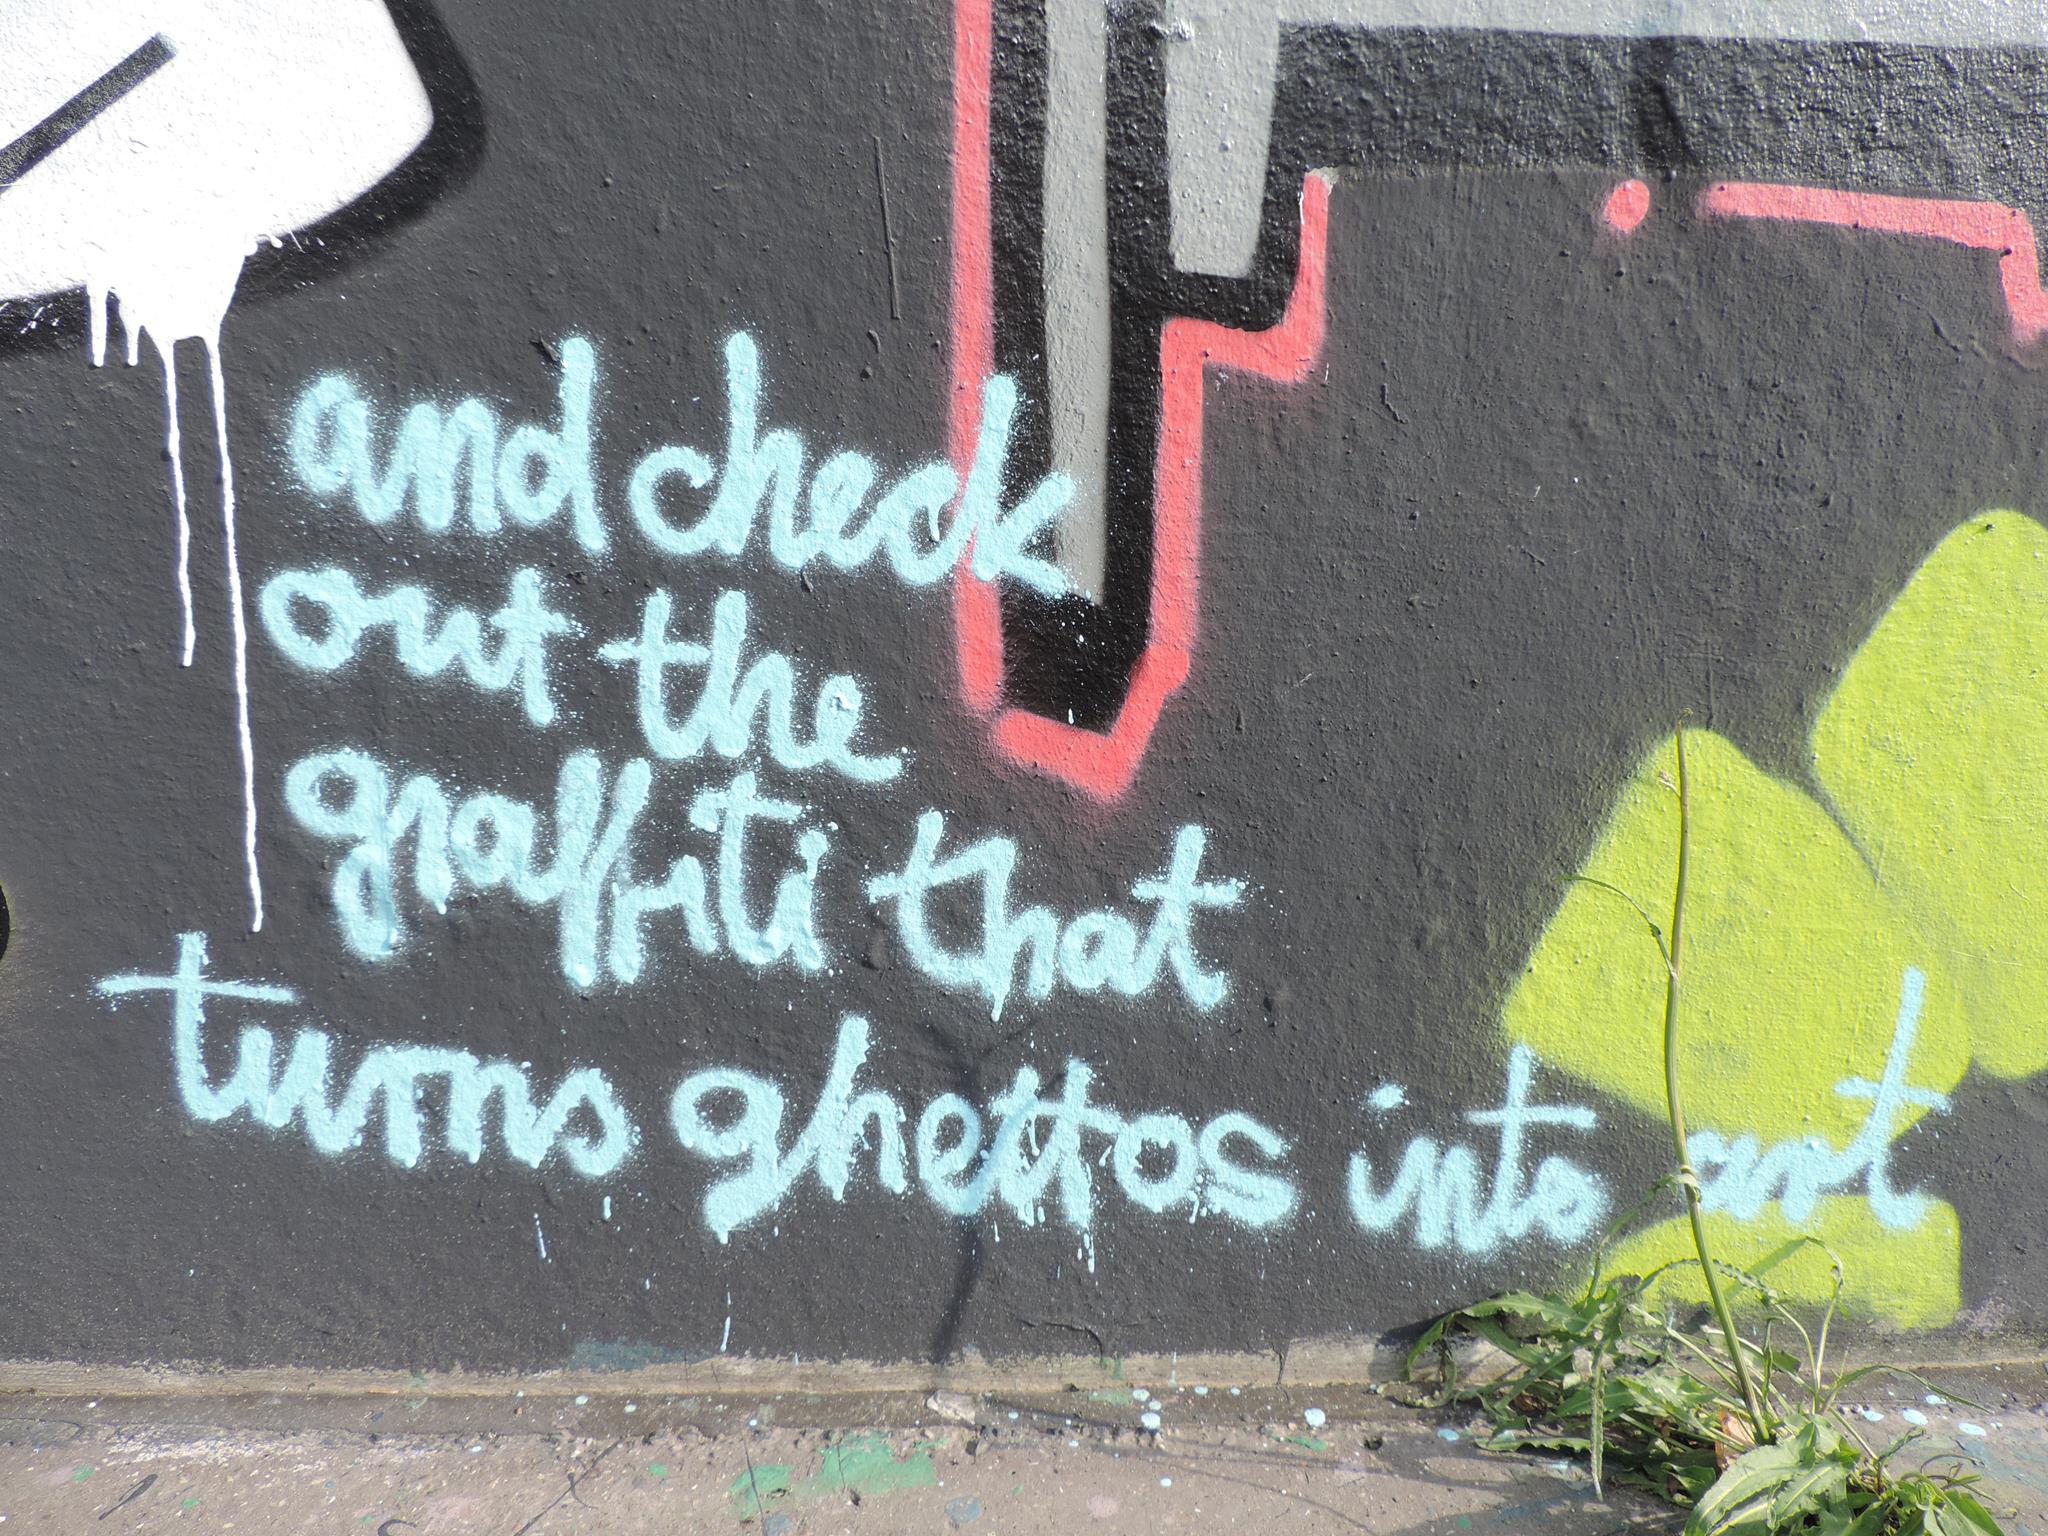 and check
out the
graffiti that
turns ghettos into art